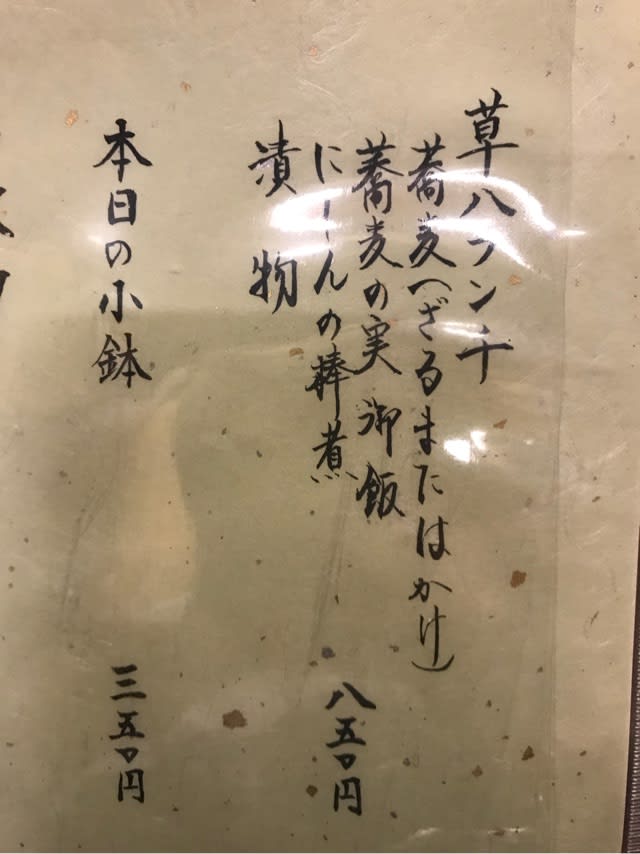 草八ランチ
蕎麦(ざるまたはかけ)
蕎麦の実 御飯
にしんの棒煮
八五〇円
漬物
本日の小鉢
三五〇円